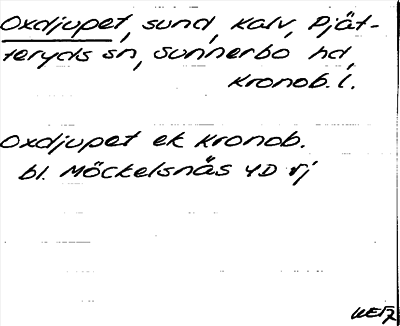 Oxdjupet, sund, Kalv, Pjät-
teryds sn, Sunnerbo hd,
Kronob. l.
Oxdjupet ek Kronob.
bl. Möckelsnäs 4D rj